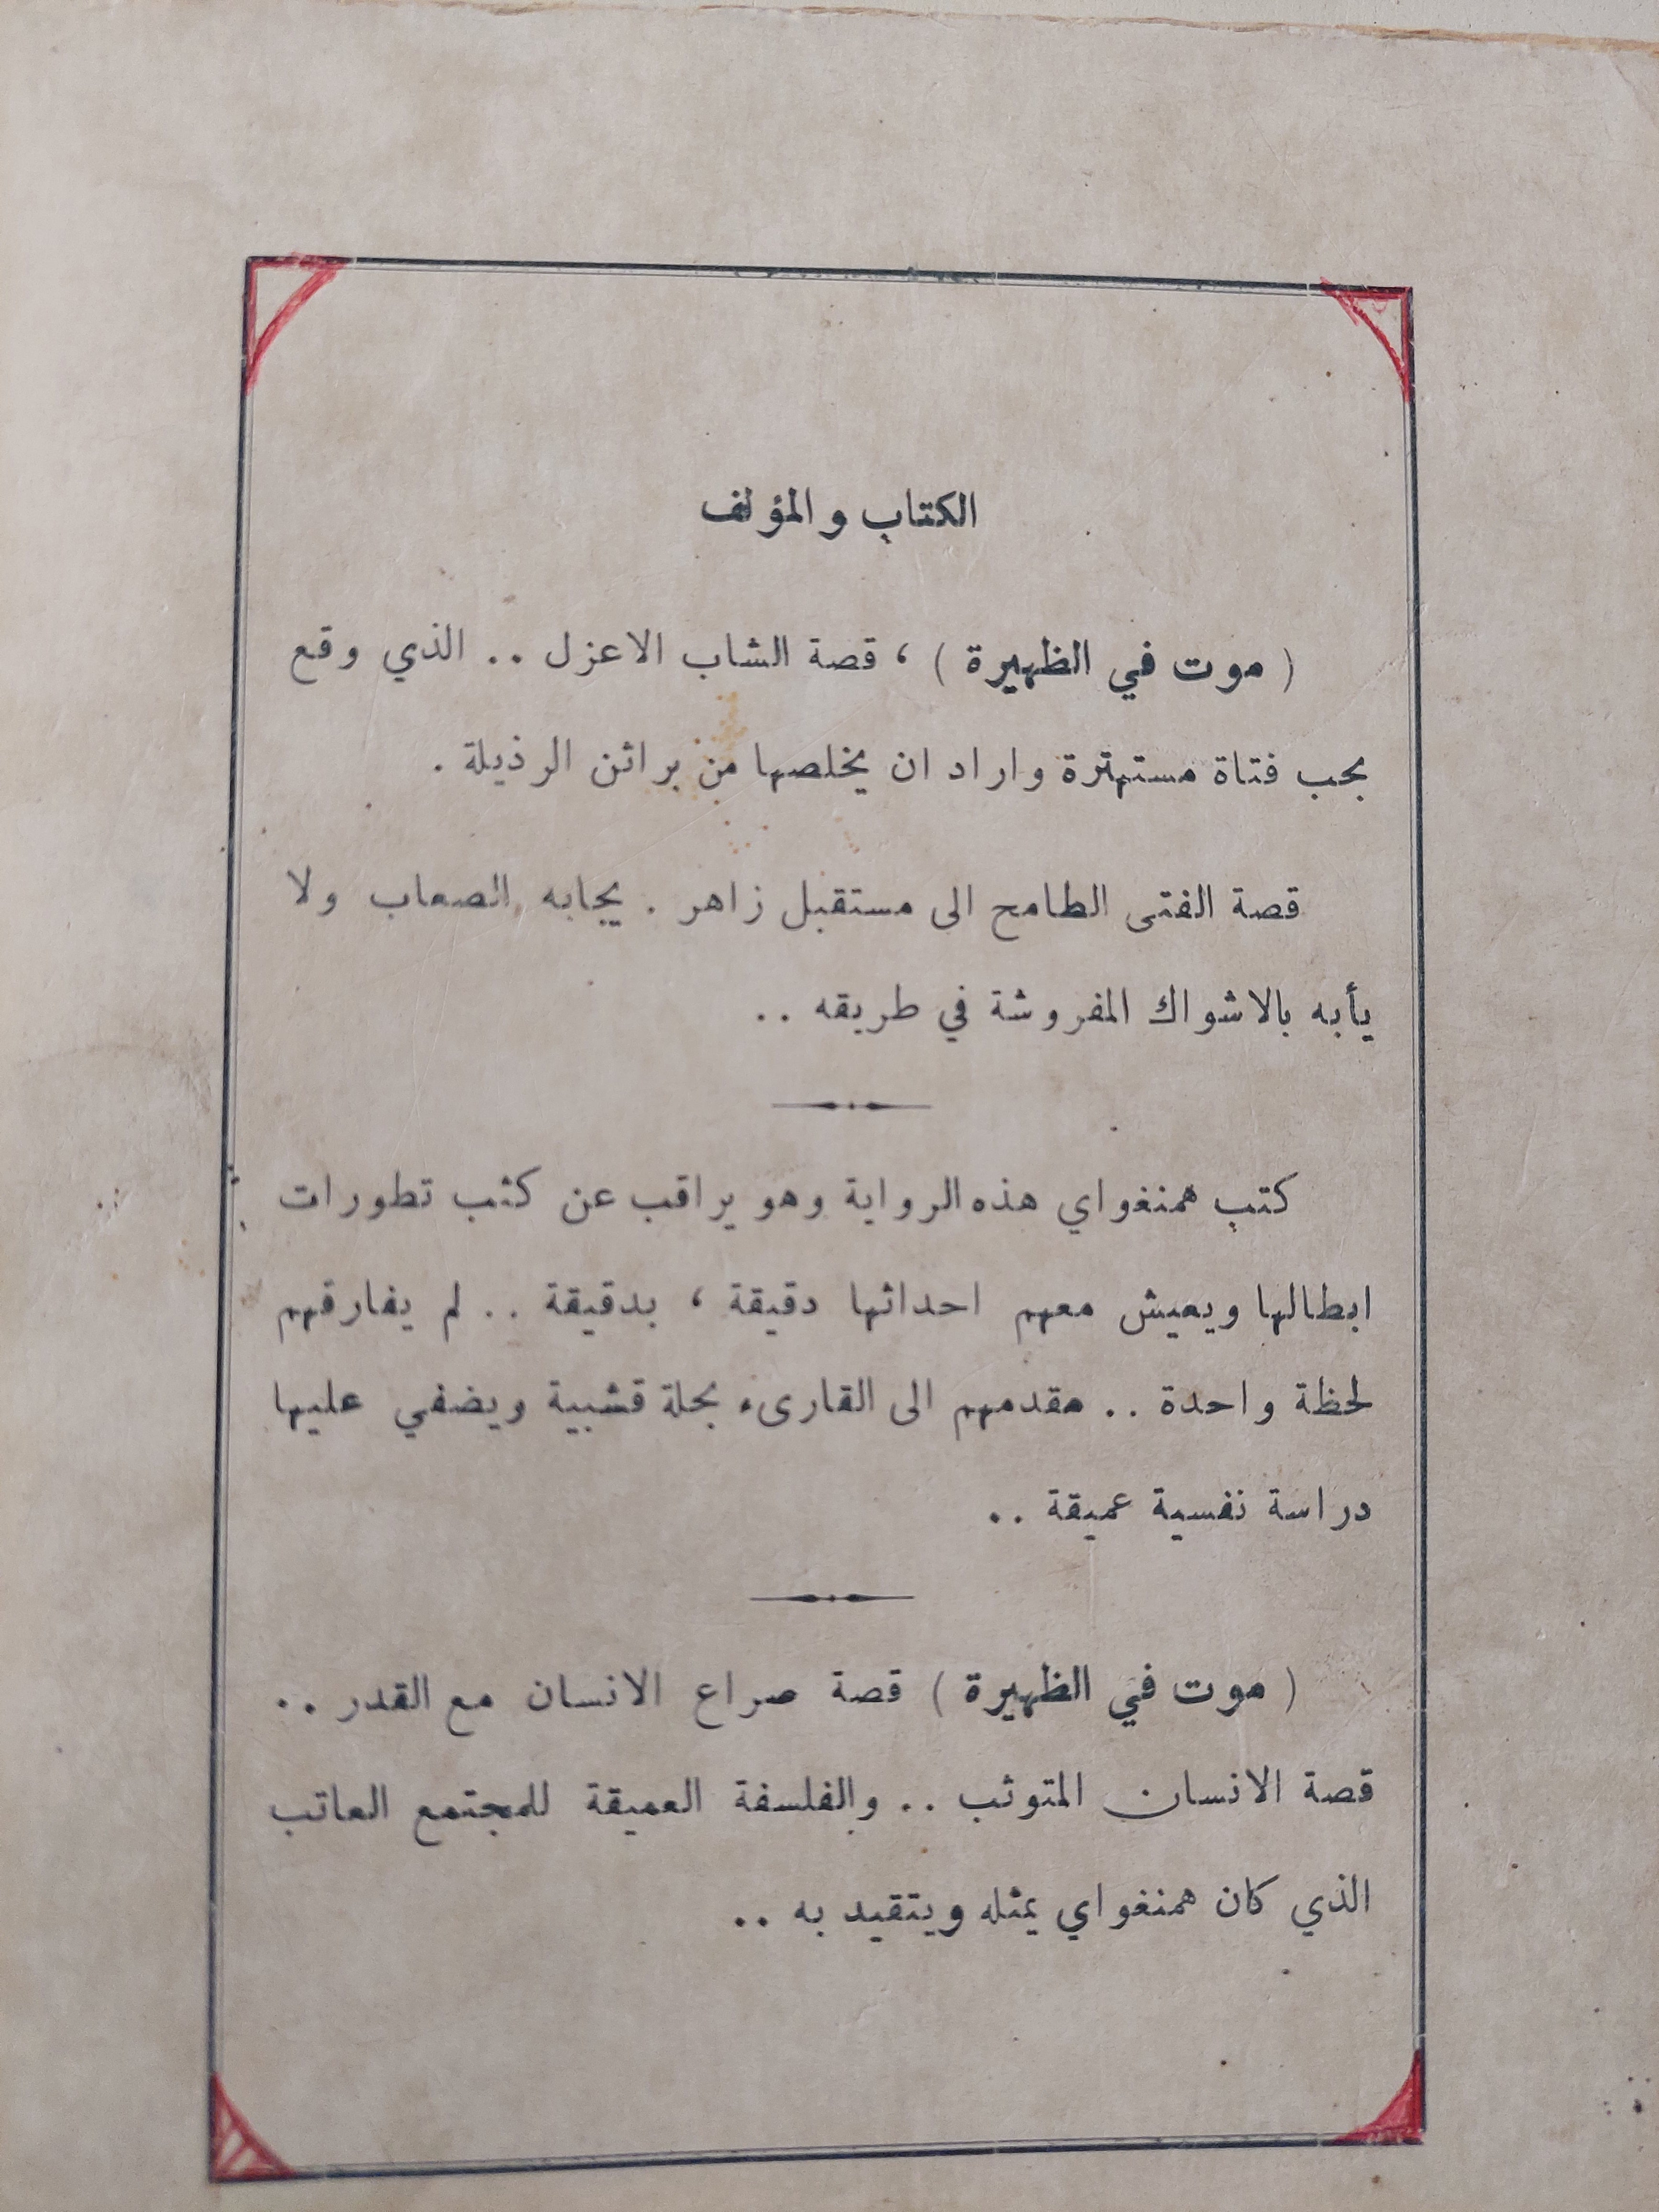 الكتاب والمؤلف
( موت في الظهيرة ) ، قصة الشاب الاعزل .. الذي وقع
بحب فتاة مستهترة واراد ان يخلصها من براثن الرذيلة .
قصة الفتى الطامح الى مستقبل زاهر . يجابه الصعاب ولا
يأبه بالاشواك المفروشة في طريقه ..
كتب همنغواي هذه الرواية وهو يراقب عن كثب تطورات
ابطالها ويعيش معهم احداثها دقيقة ، بدقيقة .. لم يفارقهم
لحظة واحدة .. مقدمهم الى القارىء بحلة قشبية ويضفي عليها
دراسة نفسية عميقة ..
( موت في الظهيرة ) قصة صراع الانسان مع القدر ..
قصة الانسان المتوثب .. والفلسفة العميقة للمجتمع العاتب
الذي كان همنغواي يمثله ويتقيد به ..